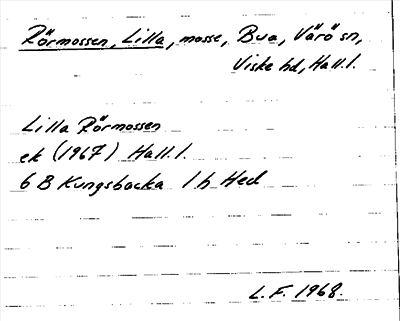 Rörmossen, Lilla, mosse, Bua, Värö sn,
Viske hd, Hall.l.
Lilla Rörmossen
ek (1967) Hall.l.
6 B Kungsbacka 1 h Hed
L.F. 1968.